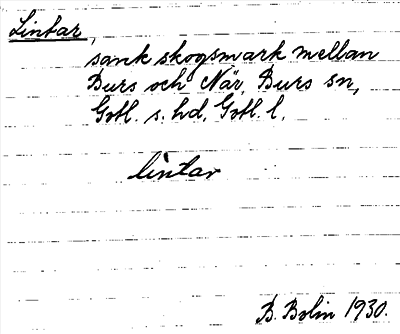 Lintar,
sank skogsmark mellan
Burs och När, Burs sn,
Gotl. s. hd, Gotl. l.
lintar
B. Bolin 1930.